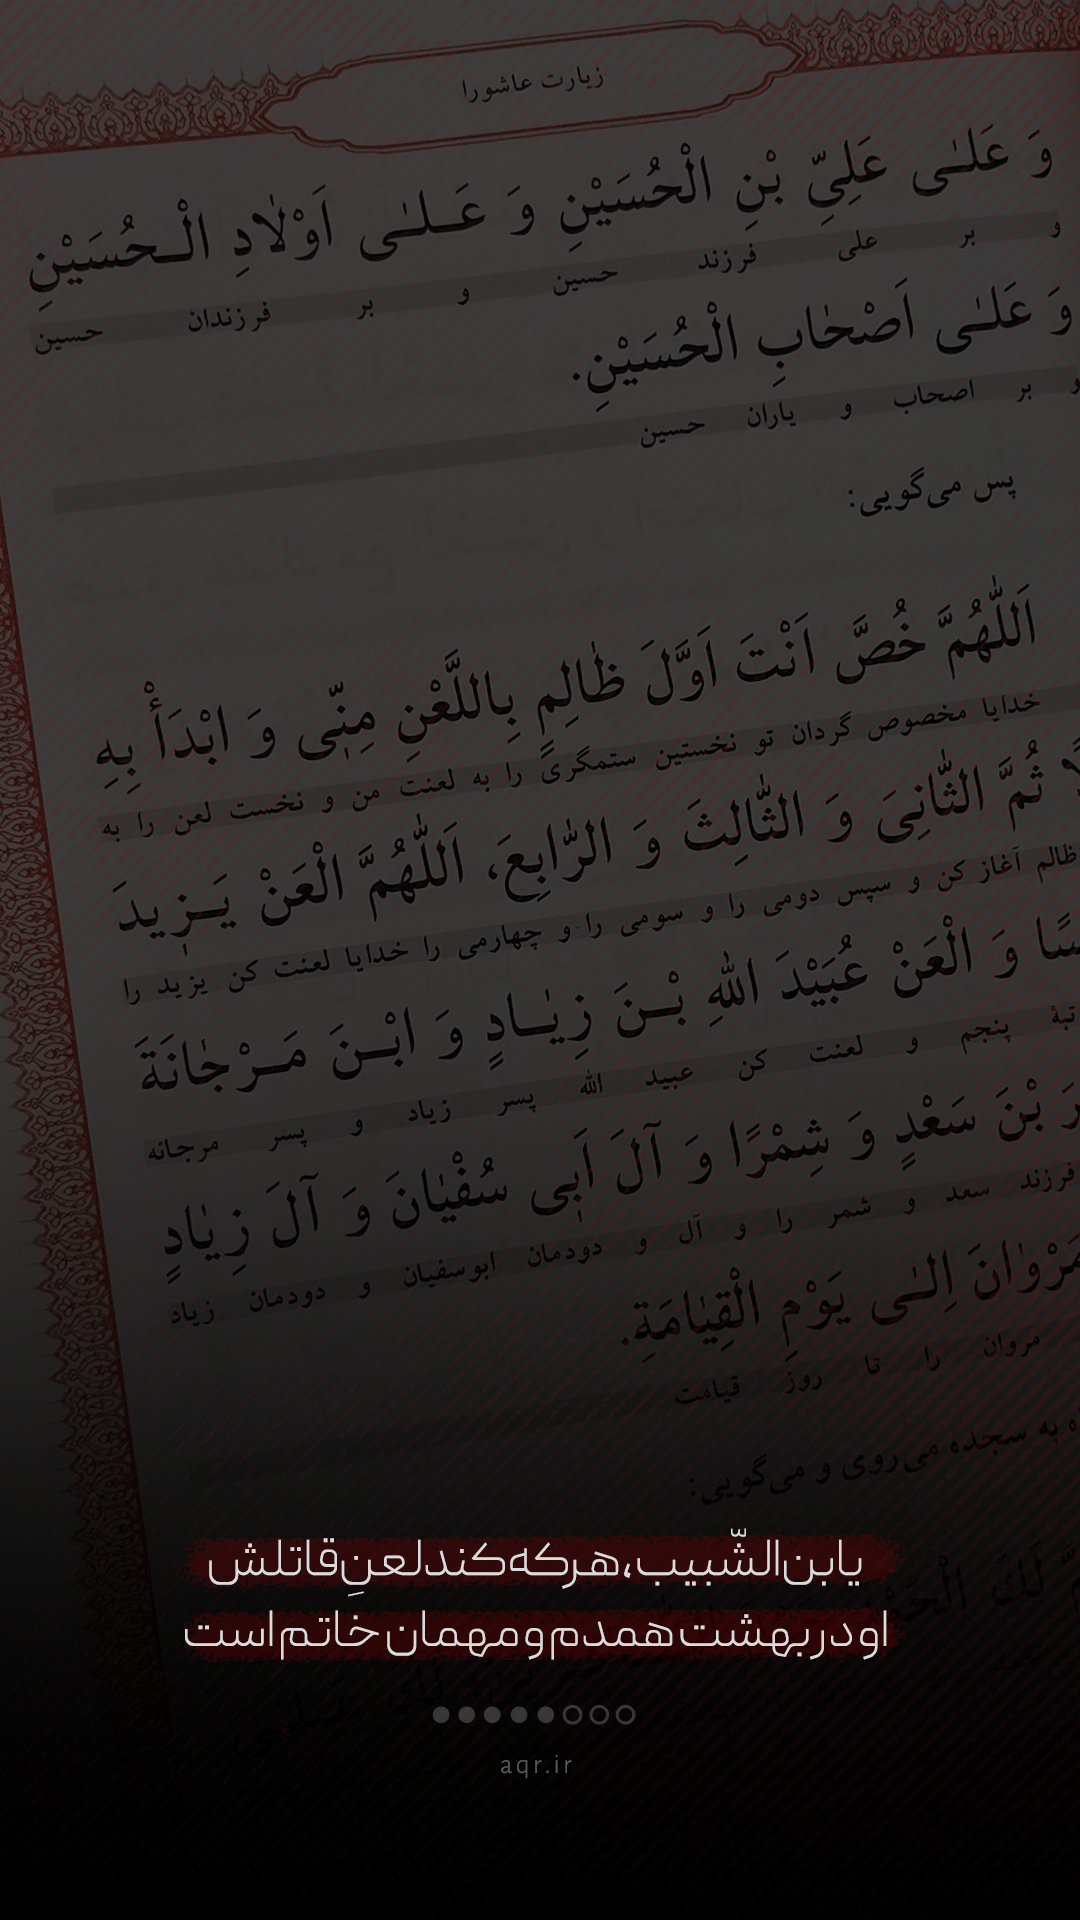 زیارت عاشورا
وَ عَلـٰـی عَلِیِّ بْنِ الْحُسَیْنِ وَ عَـلـٰـی اَوْلٰادِ الْـحُسَیْنِ
و بر علی فرزند حسین و بر فرزندان حسین
وَ عَلـٰـی اَصْحٰابِ الْحُسَیْنِ.
و بر اصحاب و یاران حسین
پس می‌گویی:
اَللّٰهُمَّ خُصَّ اَنْتَ اَوَّلَ ظٰالِمٍ بِاللَّعْنِ مِنّٖی وَ ابْدَأْ بِهِ
خدایا مخصوص گردان تو نخستین ستمگری را به لعنت من و نخست لعن را به
ثُمَّ الثّٰانِیَ وَ الثّٰالِثَ وَ الرّٰابِعَ، اَللّٰهُمَّ الْعَنْ یَـزٖیدَ
ظالم آغاز کن و سپس دومی را و سومی را و چهارمی را خدایا لعنت کن یزید را
وَ الْعَنْ عُبَیْدَ اللهِ بْـنَ زِیٰـادٍ وَ ابْـنَ مَـرْجٰانَةَ
پنجم و لعنت کن عبید الله پسر زیاد و پسر مرجانه
بْنَ سَعْدٍ وَ شِمْرًا وَ آلَ اَبٖی سُفْیٰانَ وَ آلَ زِیٰادٍ
فرزند سعد و شمر را و آل و دودمان ابوسفیان و دودمان زیاد
مَرْوٰانَ اِلـٰـی یَوْمِ الْقِیٰامَةِ.
مروان را تا روز قیامت
به سجده می‌روی و می‌گویی:
لَكَ
یابن الشّبیب، هرکه کند لعنِ قاتلش
او در بهشت همدم و مهمان خاتم است
aqr.ir